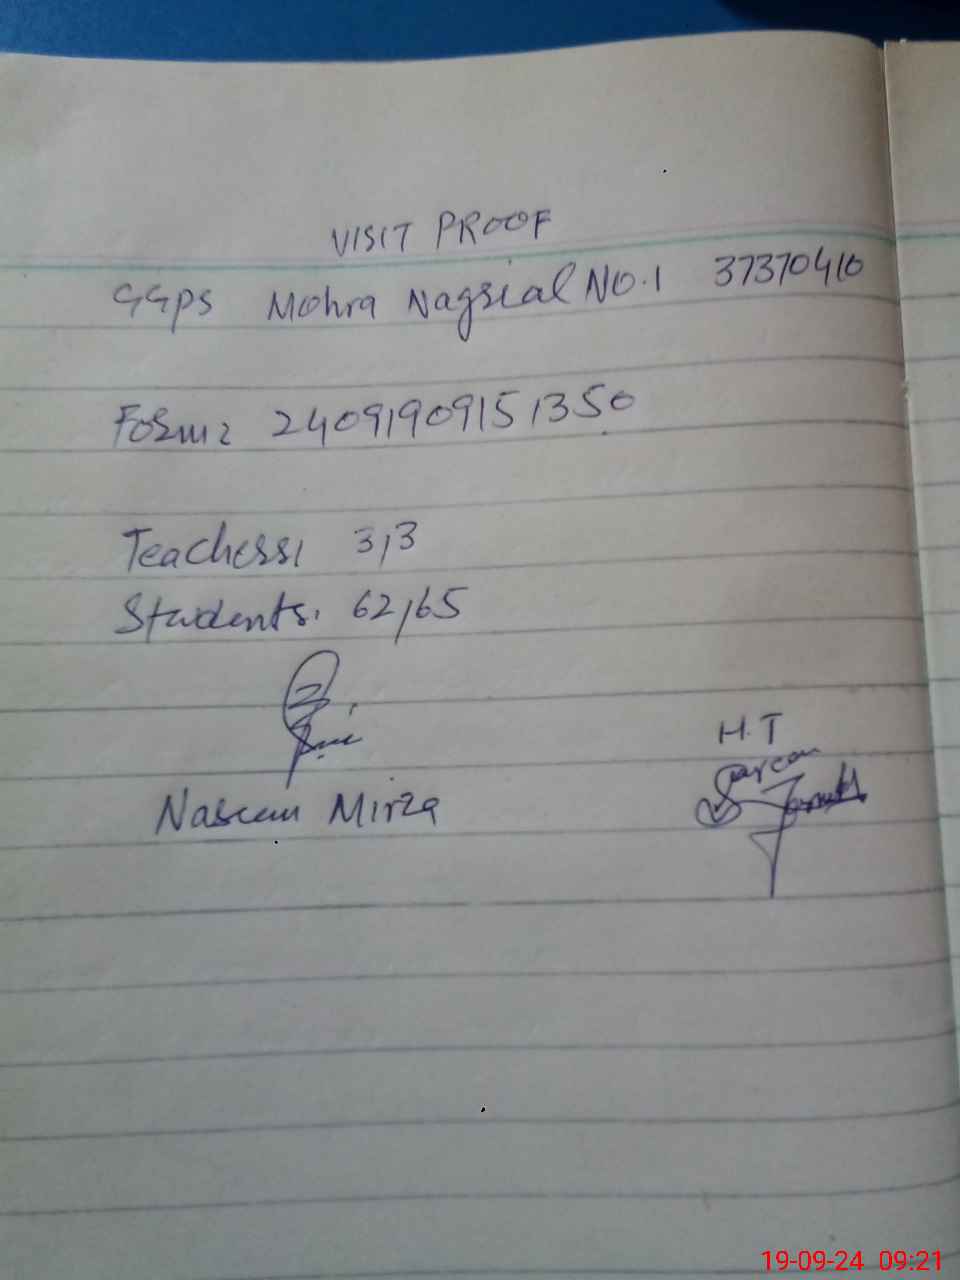 VISIT PROOF
GGPS Mohra Nagrial No.1 37370410
Form: 24091909151350
Teachers: 3,3
Students: 62,65
H.T
Naseem Mirza
19-09-24 09:21